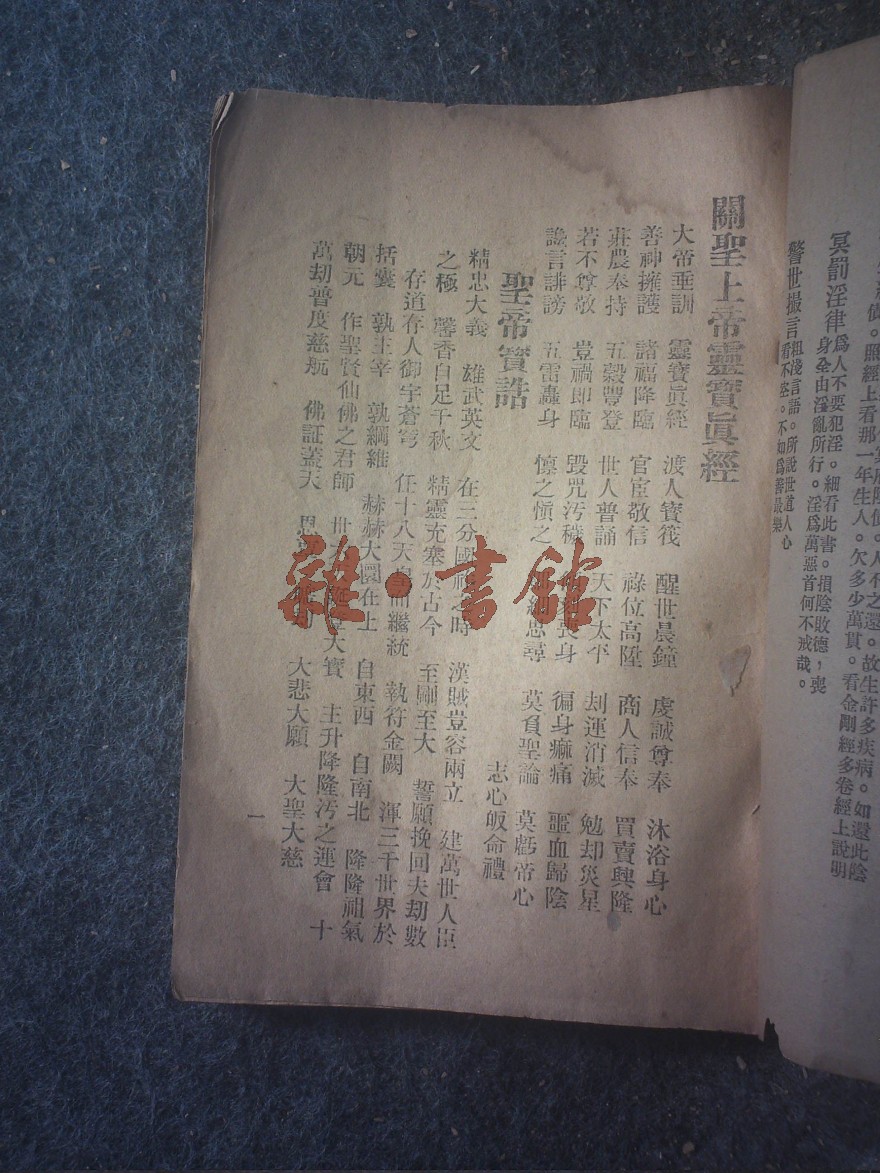 身全由淫亂所行。淫爲萬惡首何不戒哉。
冥罰淫律爲人不要犯淫。細看此書。損陰敗德，喪
警世撮言粗淺言語。所說世道人心
看不空。不如爲善最樂
關聖上帝靈寶眞經
大帝垂訓 靈寶眞經 渡人寶筏 醒世晨鐘 虔誠尊奉 沐浴身心
善神擁護 諸福降臨 官宦敬信 祿位高陞 商人信奉 買賣興隆
莊農奉持 五穀豐登 世人普誦 天下太平 刦運消滅 勉却災星
若不尊敬 豈禍即臨 毀咒汚穢 身 徧身痲痛 噩血歸陰
讒言誹謗 五雷轟身 懍之愼之 思尋 莫負聖論 莫虧帝心
聖帝寶誥
志心皈命禮
精忠大義 雄武英文 在三分國 之時 漢賊豈容兩立 建萬世人臣
之極 馨香自足千秋 精靈充塞於古今 至剛至大 誓願挽回夫劫數
存道存人御宇蒼穹 任十八天皇而繼統 執符金闕 渾三千世界於
括囊 孰主宰 孰綱維 赫赫大圜在上 自東西 自南北 隆隆祖氣
朝元 作聖賢仙佛之君師 世 大寶 主升降隆汚之運會 十
萬劫普度慈航 佛証蓋天 恩 大悲大願 大聖大慈
一
雜·書館